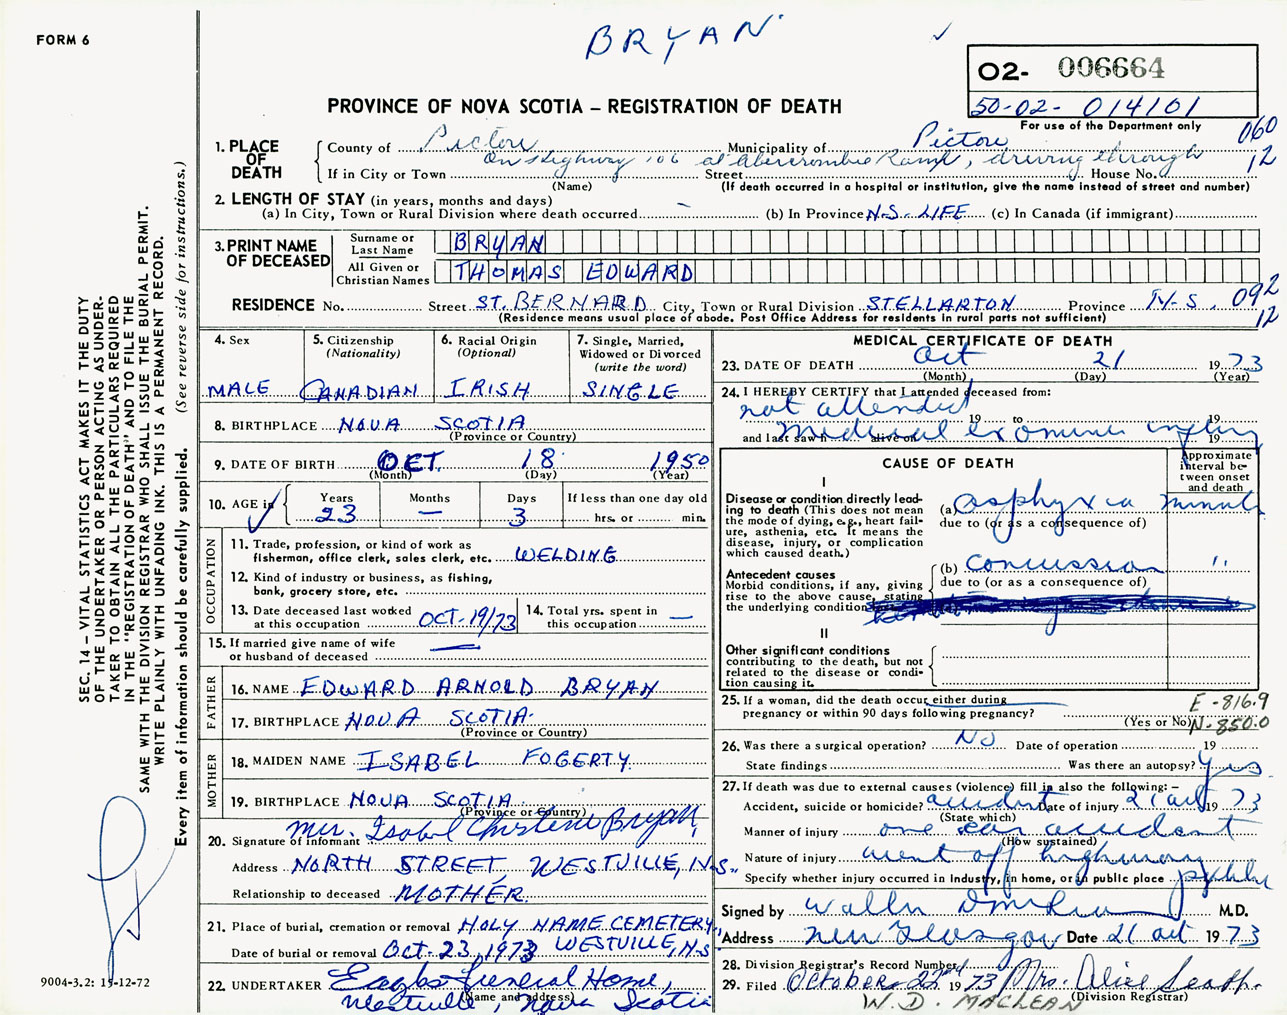 BRYAN
FORM 6
O2- 006664
50-02- 014101
For use of the Department only
PROVINCE OF NOVA SCOTIA – REGISTRATION OF DEATH
060
12
1. PLACE OF DEATH
County of Pictou Municipality of Pictou
On Highway 106 at Abercrombie Ramp, driving through
If in City or Town Street House No.
(Name) (If death occurred in a hospital or institution, give the name instead of street and number)
2. LENGTH OF STAY (in years, months and days)
(a) In City, Town or Rural Division where death occurred – (b) In Province N.S. LIFE (c) In Canada (if immigrant)
3. PRINT NAME OF DECEASED
Surname or Last Name BRYAN
All Given or Christian Names THOMAS EDWARD
RESIDENCE No. Street ST. BERNARD City, Town or Rural Division STELLARTON Province N.S. 092
12
(Residence means usual place of abode. Post Office Address for residents in rural parts not sufficient)
4. Sex
MALE
5. Citizenship (Nationality)
CANADIAN
6. Racial Origin (Optional)
IRISH
7. Single, Married, Widowed or Divorced (write the word)
SINGLE
8. BIRTHPLACE NOVA SCOTIA
(Province or Country)
9. DATE OF BIRTH OCT. 18 1950
(Month) (Day) (Year)
10. AGE in Years Months Days If less than one day old
23 — 3 hrs. or min.
OCCUPATION
11. Trade, profession, or kind of work as fisherman, office clerk, sales clerk, etc. WELDING
12. Kind of industry or business, as fishing, bank, grocery store, etc.
13. Date deceased last worked at this occupation OCT. 19/73
14. Total yrs. spent in this occupation —
15. If married give name of wife or husband of deceased —
FATHER
16. NAME EDWARD ARNOLD BRYAN
17. BIRTHPLACE NOVA SCOTIA
(Province or Country)
MOTHER
18. MAIDEN NAME ISABEL FOGERTY
19. BIRTHPLACE NOVA SCOTIA
(Province or Country)
20. Signature of informant Mrs. Isabel Christene Bryan
Address NORTH STREET, WESTVILLE, N.S.
Relationship to deceased MOTHER
21. Place of burial, cremation or removal HOLY NAME CEMETERY,
Date of burial or removal Oct. 23, 1973 WESTVILLE, N.S.
22. UNDERTAKER Eagles Funeral Home,
(Name and address)
Westville, Nova Scotia
MEDICAL CERTIFICATE OF DEATH
23. DATE OF DEATH Oct 21 1973
(Month) (Day) (Year)
24. I HEREBY CERTIFY that I attended deceased from:
not attended 19 to 19
and last saw h alive on 19
Medical examiner
CAUSE OF DEATH
Approximate interval between onset and death
I
Disease or condition directly leading to death (This does not mean the mode of dying, e.g., heart failure, asthenia, etc. It means the disease, injury, or complication which caused death.)
(a) asphyxia minute
due to (or as a consequence of)
Antecedent causes
Morbid conditions, if any, giving rise to the above cause, stating the underlying condition
(b) concussion "
due to (or as a consequence of)
II
Other significant conditions contributing to the death, but not related to the disease or condition causing it.
25. If a woman, did the death occur either during pregnancy or within 90 days following pregnancy?
(Yes or No)
E-816.9
N-850.0
26. Was there a surgical operation? No Date of operation 19
State findings Was there an autopsy? yes
27. If death was due to external causes (violence) fill in also the following:–
Accident, suicide or homicide? accident Date of injury 21 Oct 1973
(State which)
Manner of injury one car accident
(How sustained)
Nature of injury went off highway
Specify whether injury occurred in Industry, in home, or in public place public
Signed by M.D.
Address New Glasgow Date 21 Oct 1973
28. Division Registrar's Record Number
29. Filed October 22nd 1973 Mrs. Alice
(Division Registrar)
W.D. MACLEAN
SEC. 14 – VITAL STATISTICS ACT MAKES IT THE DUTY
OF THE UNDERTAKER OR PERSON ACTING AS UNDER-
TAKER TO OBTAIN ALL THE PARTICULARS REQUIRED
IN THE "REGISTRATION OF DEATH" AND TO FILE THE
SAME WITH THE DIVISION REGISTRAR WHO SHALL ISSUE THE BURIAL PERMIT.
WRITE PLAINLY WITH UNFADING INK. THIS IS A PERMANENT RECORD.
Every item of information should be carefully supplied. (See reverse side for instructions.)
9004-3.2: 15-12-72